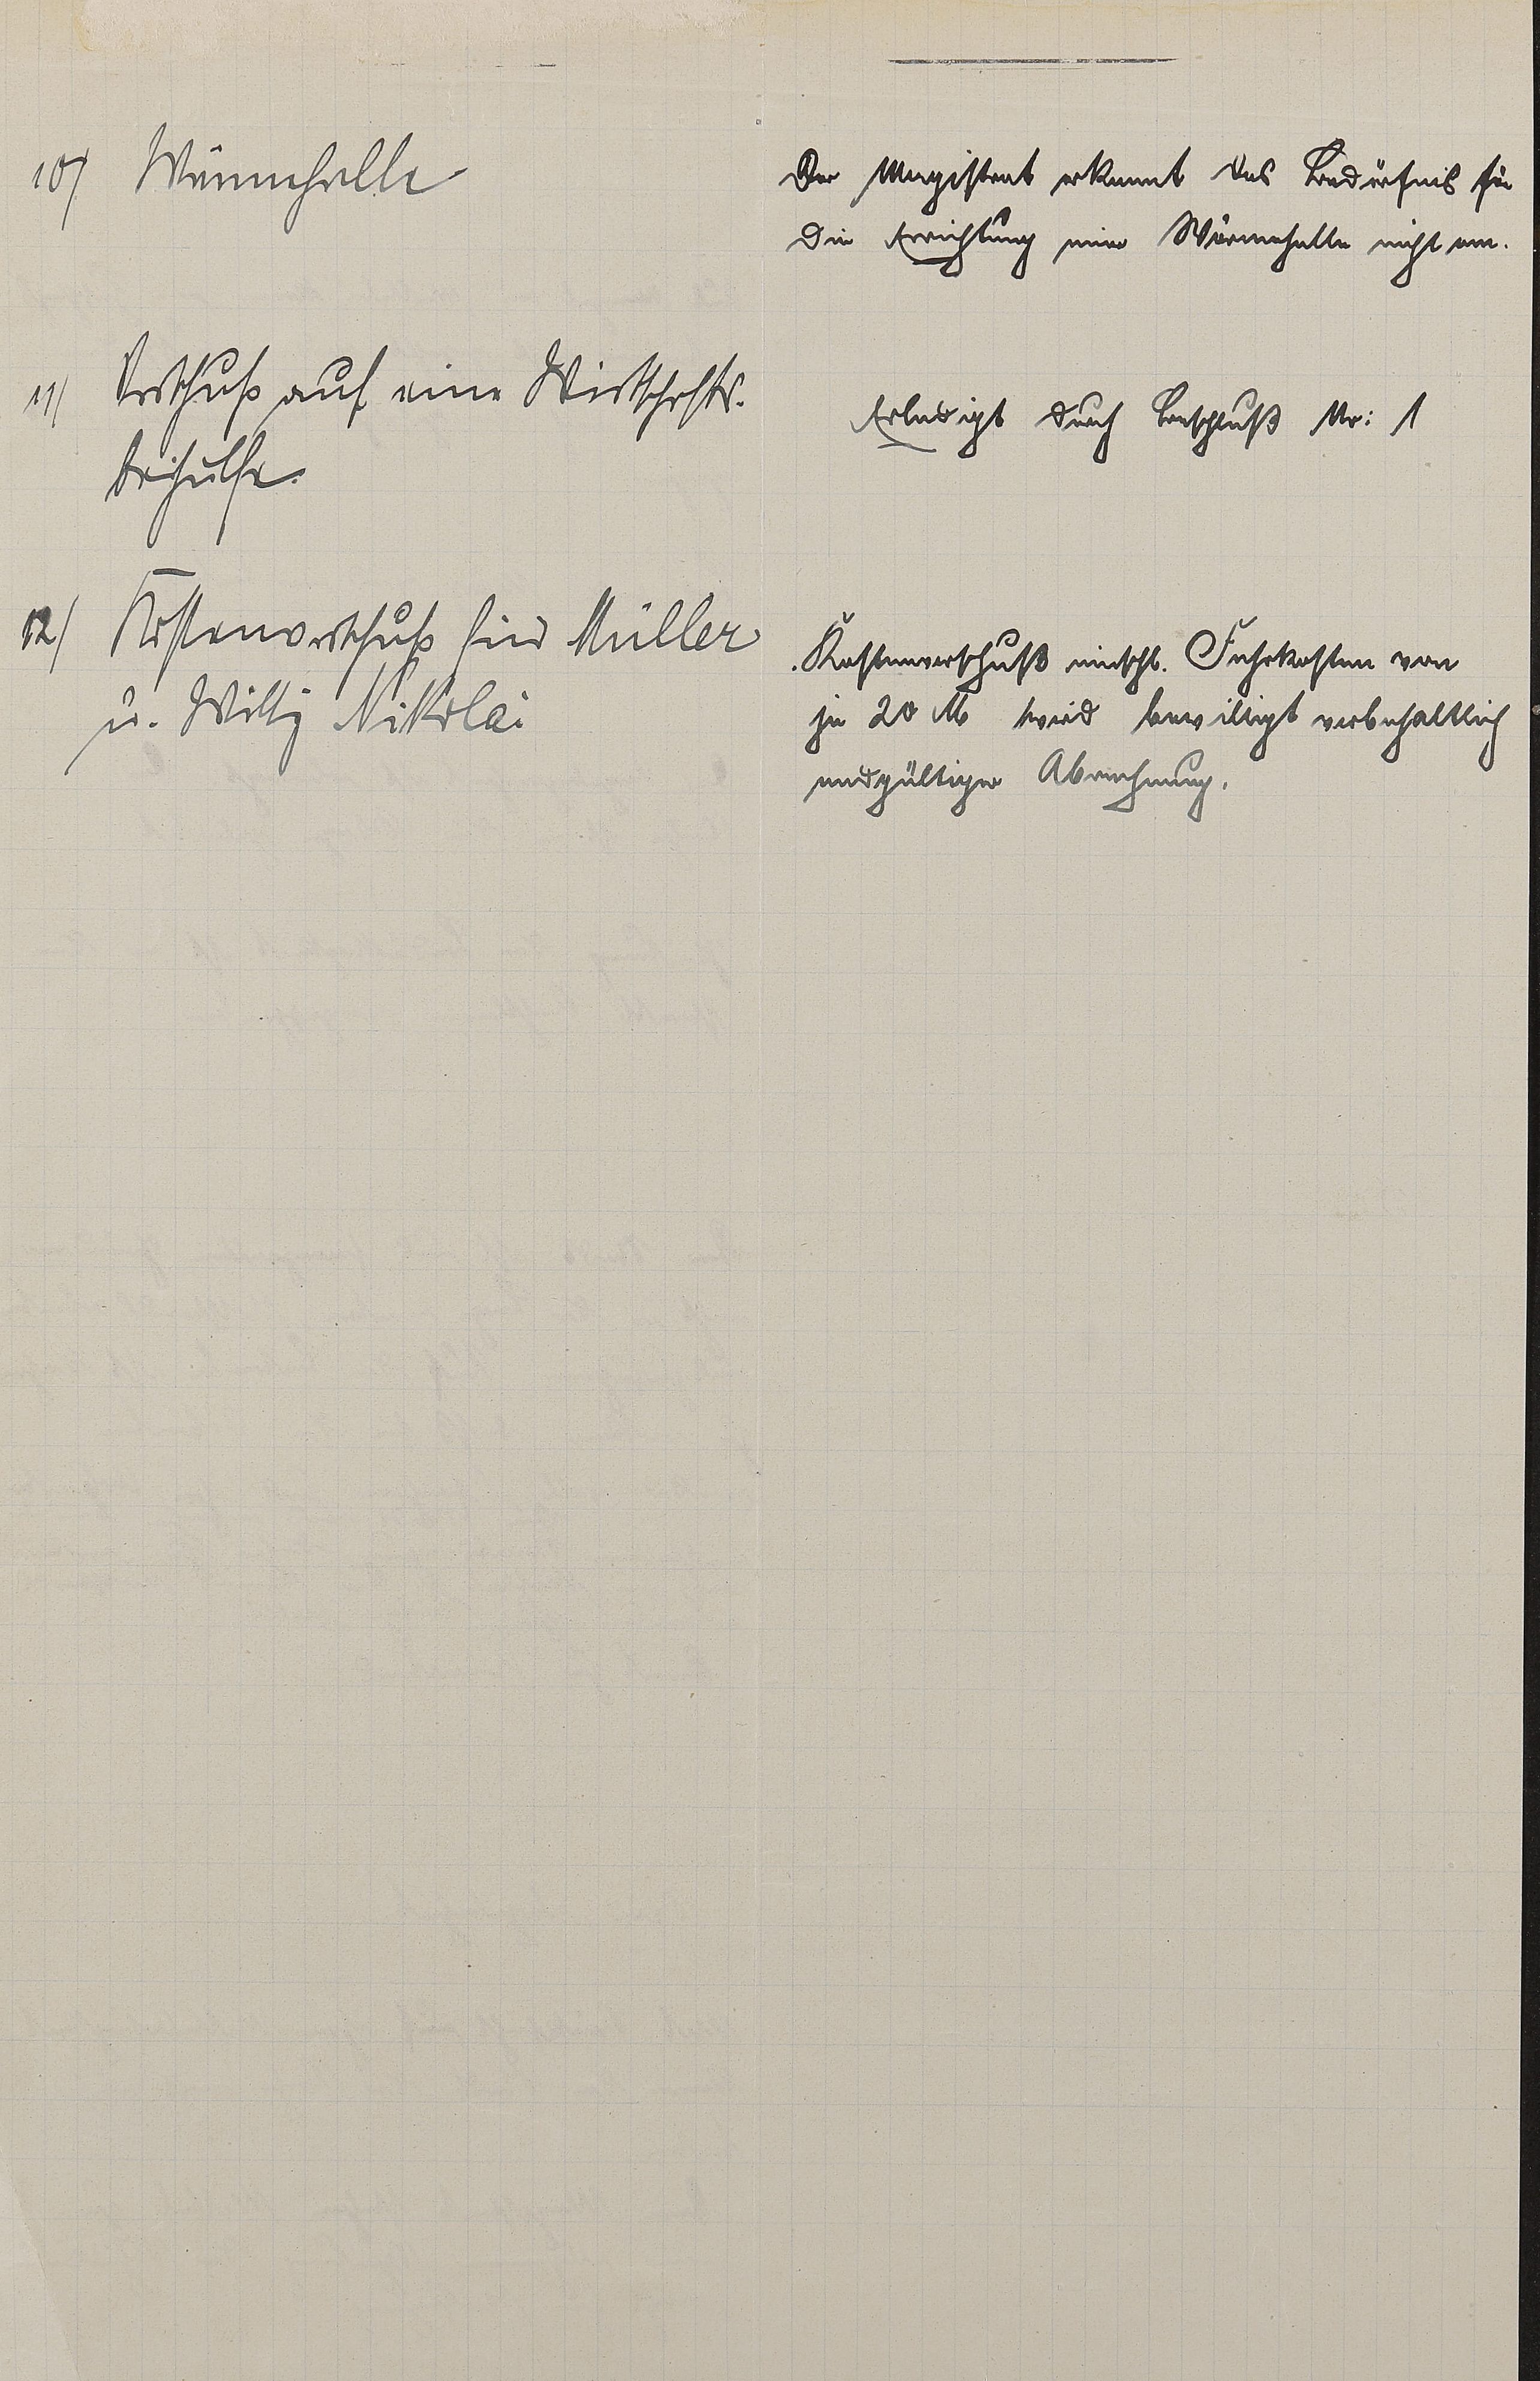 10/ Wärmehalle
Der Magistrat erkennt das Bedürfnis für
die Errichtung einer Wärmehalle nicht an.
11/ Vorschuß auf eine Wirtschafts-
beihülfe.
Erledigt durch Beschluß Nr: 1
12/ Kostenvorschuß für Müller
u. Willy Nikolai
Kostenvorschuß einschl. Fuhrkosten von
je 20 M wird bewilligt vorbehaltlich
endgültiger Abrechnung.